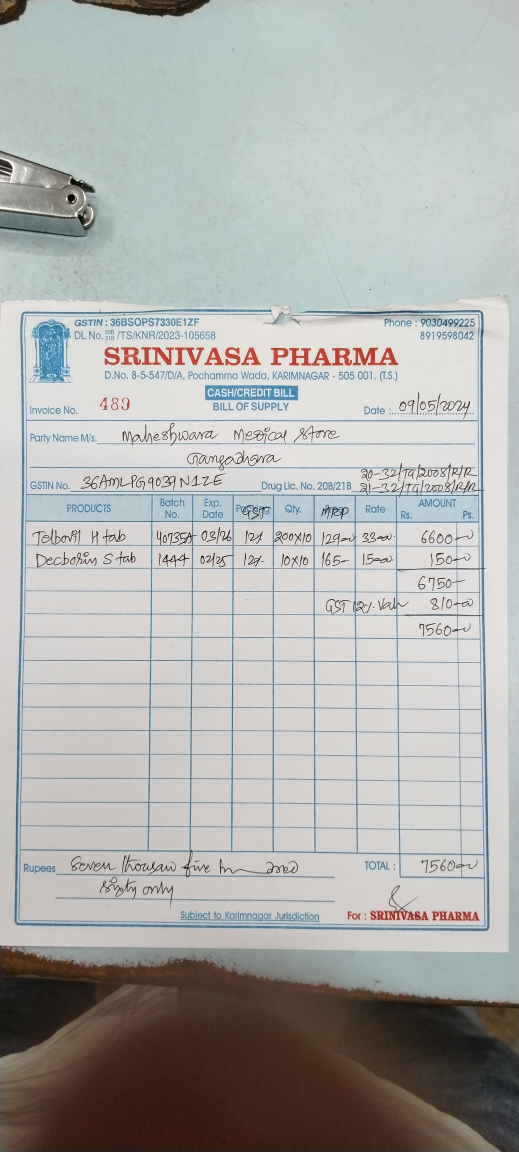 GSTIN : 36BSOPS7330E1ZF
Phone : 9030499225
DL No. 20B 21B /TS/KNR/2023-105658
8919598042
SRINIVASA PHARMA
D.No. 8-5-547/D/A, Pochamma Wada, KARIMNAGAR - 505 001. (T.S.)
CASH/CREDIT BILL
Invoice No. 489
BILL OF SUPPLY
Date : 09/05/2024
Party Name M/s. Maheshwara Medical Store
Gangadhara
20-32/TG/2008/R/R
GSTIN No. 36AMLPG9039N1ZE Drug Lic. No. 20B/21B 21-32/TG/2008/R/R
PRODUCTS Batch No. Exp. Date GST Qty. MRP Rate AMOUNT Rs. Ps.
H tab 40735A 03/26 12% 200x10 129-00 33-00 6600-00
S tab 1444 02/25 12% 10x10 165- 15-00 150-00
6750-
GST 12% 810-00
7560-00
Rupees Seven five
TOTAL : 7560-00
sixty only
Subject to Karimnagar Jurisdiction
For : SRINIVASA PHARMA